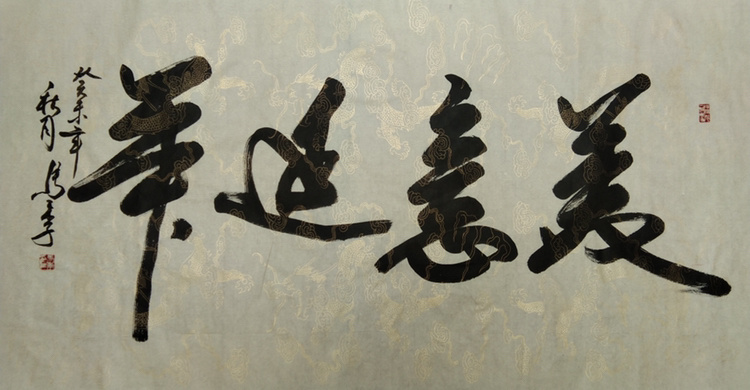 美意延年
癸未年
秋月 馬季